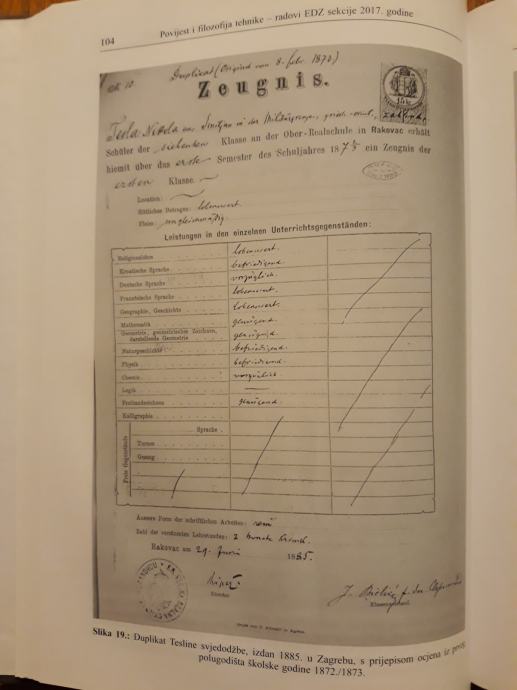 104
Povijest i filozofija tehnike – radovi EDZ sekcije 2017. godine
Duplikat (Original vom 8. Febr. 1873.)
Zeugnis.
Tesla Nikola aus Smiljan in der Militärgrenze,
Schüler der siebenten Klasse an der Ober-Realschule in Rakovac erhält
hiemit über das erste Semester des Schuljahres 187 2/3 ein Zeugnis der
ersten Klasse.
Location:
Sittliches Betragen: lobenswert.
Fleiss: ungleichmäßig.
Leistungen in den einzelnen Unterrichtsgegenständen:
Religionslehre lobenswert.
Kroatische Sprache befriedigend.
Deutsche Sprache vorzüglich.
Französische Sprache lobenswert.
Geographie, Geschichte lobenswert.
Mathematik genügend.
Geometrie, geometrisches Zeichnen,
darstellende Geometrie genügend.
Naturgeschichte befriedigend.
Physik befriedigend.
Chemie vorzüglich.
Logik
Freihandzeichnen genügend.
Kalligraphie
Freie Gegenstände
Sprache
Turnen
Gesang
Äussere Form der schriftlichen Arbeiten: rein
Zahl der versäumten Lehrstunden: 2 Monate krank.
Rakovac am 29. Juni 1885.
Director
Klassenvorstand.
Slika 19.: Duplikat Tesline svjedodžbe, izdan 1885. u Zagrebu, s prijepisom ocjena iz prvog
polugodišta školske godine 1872./1873.